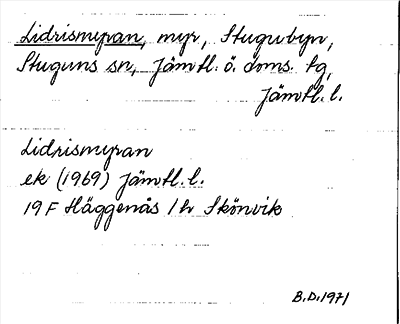 Lidrismyran, myr, Stugubyn,
Stuguns sn, Jämtl. ö. doms. tg,
Jämtl. l.
Lidrismyran
ek (1969) Jämtl. l.
19 F Häggenås 1h Skönvik
B.D. 1971